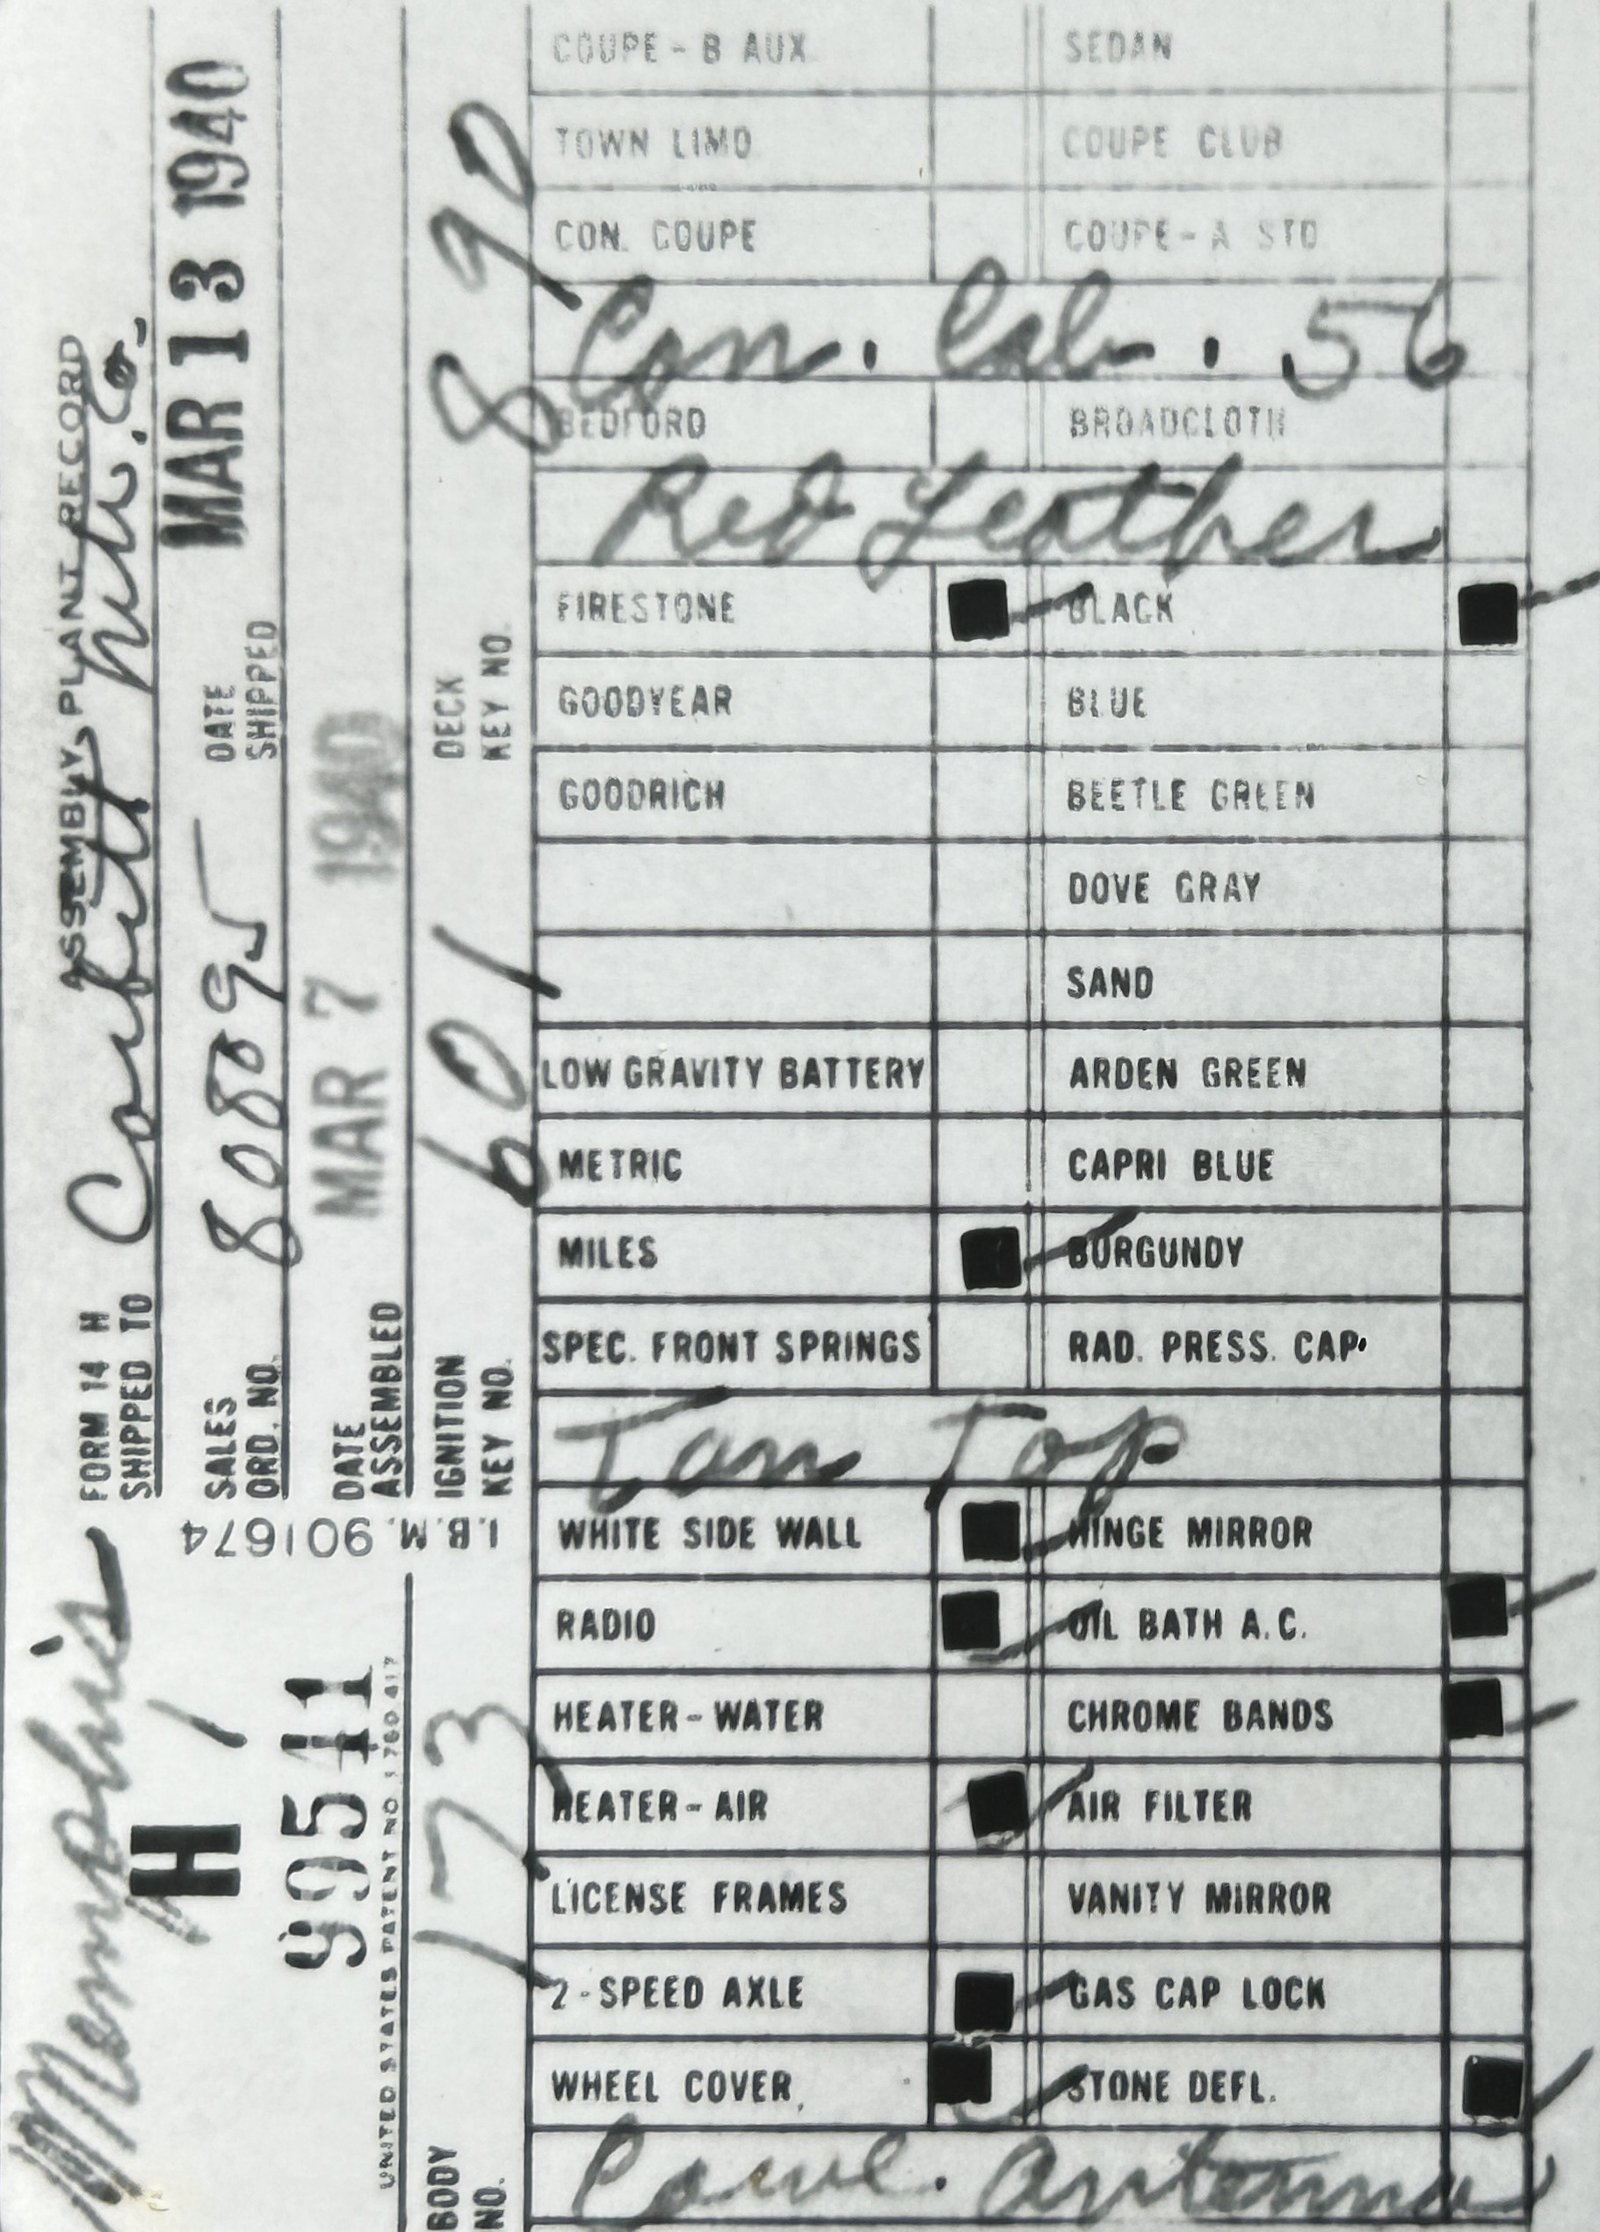 FORM 14 H ASSEMBLY PLANT RECORD
SHIPPED TO
SALES ORD. NO. 80895
DATE SHIPPED MAR 13 1940
DATE ASSEMBLED MAR 7 1940
IGNITION KEY NO. 601
DECK KEY NO. 890
I.B.M. 901674
Memphis
H 1
99541
UNITED STATES PATENT NO 1 760 417
BODY NO. 173
COUPE - B AUX SEDAN
TOWN LIMO COUPE CLUB
CON. COUPE COUPE - A STD
Con. Cab. . 56
BEDFORD BROADCLOTH
Red Leather
FIRESTONE BLACK
GOODYEAR BLUE
GOODRICH BEETLE GREEN
DOVE GRAY
SAND
LOW GRAVITY BATTERY ARDEN GREEN
METRIC CAPRI BLUE
MILES BURGUNDY
SPEC. FRONT SPRINGS RAD. PRESS. CAP.
Tan Top
WHITE SIDE WALL HINGE MIRROR
RADIO OIL BATH A.C.
HEATER - WATER CHROME BANDS
HEATER - AIR AIR FILTER
LICENSE FRAMES VANITY MIRROR
2 - SPEED AXLE GAS CAP LOCK
WHEEL COVER STONE DEFL.
Cowl. Antenna